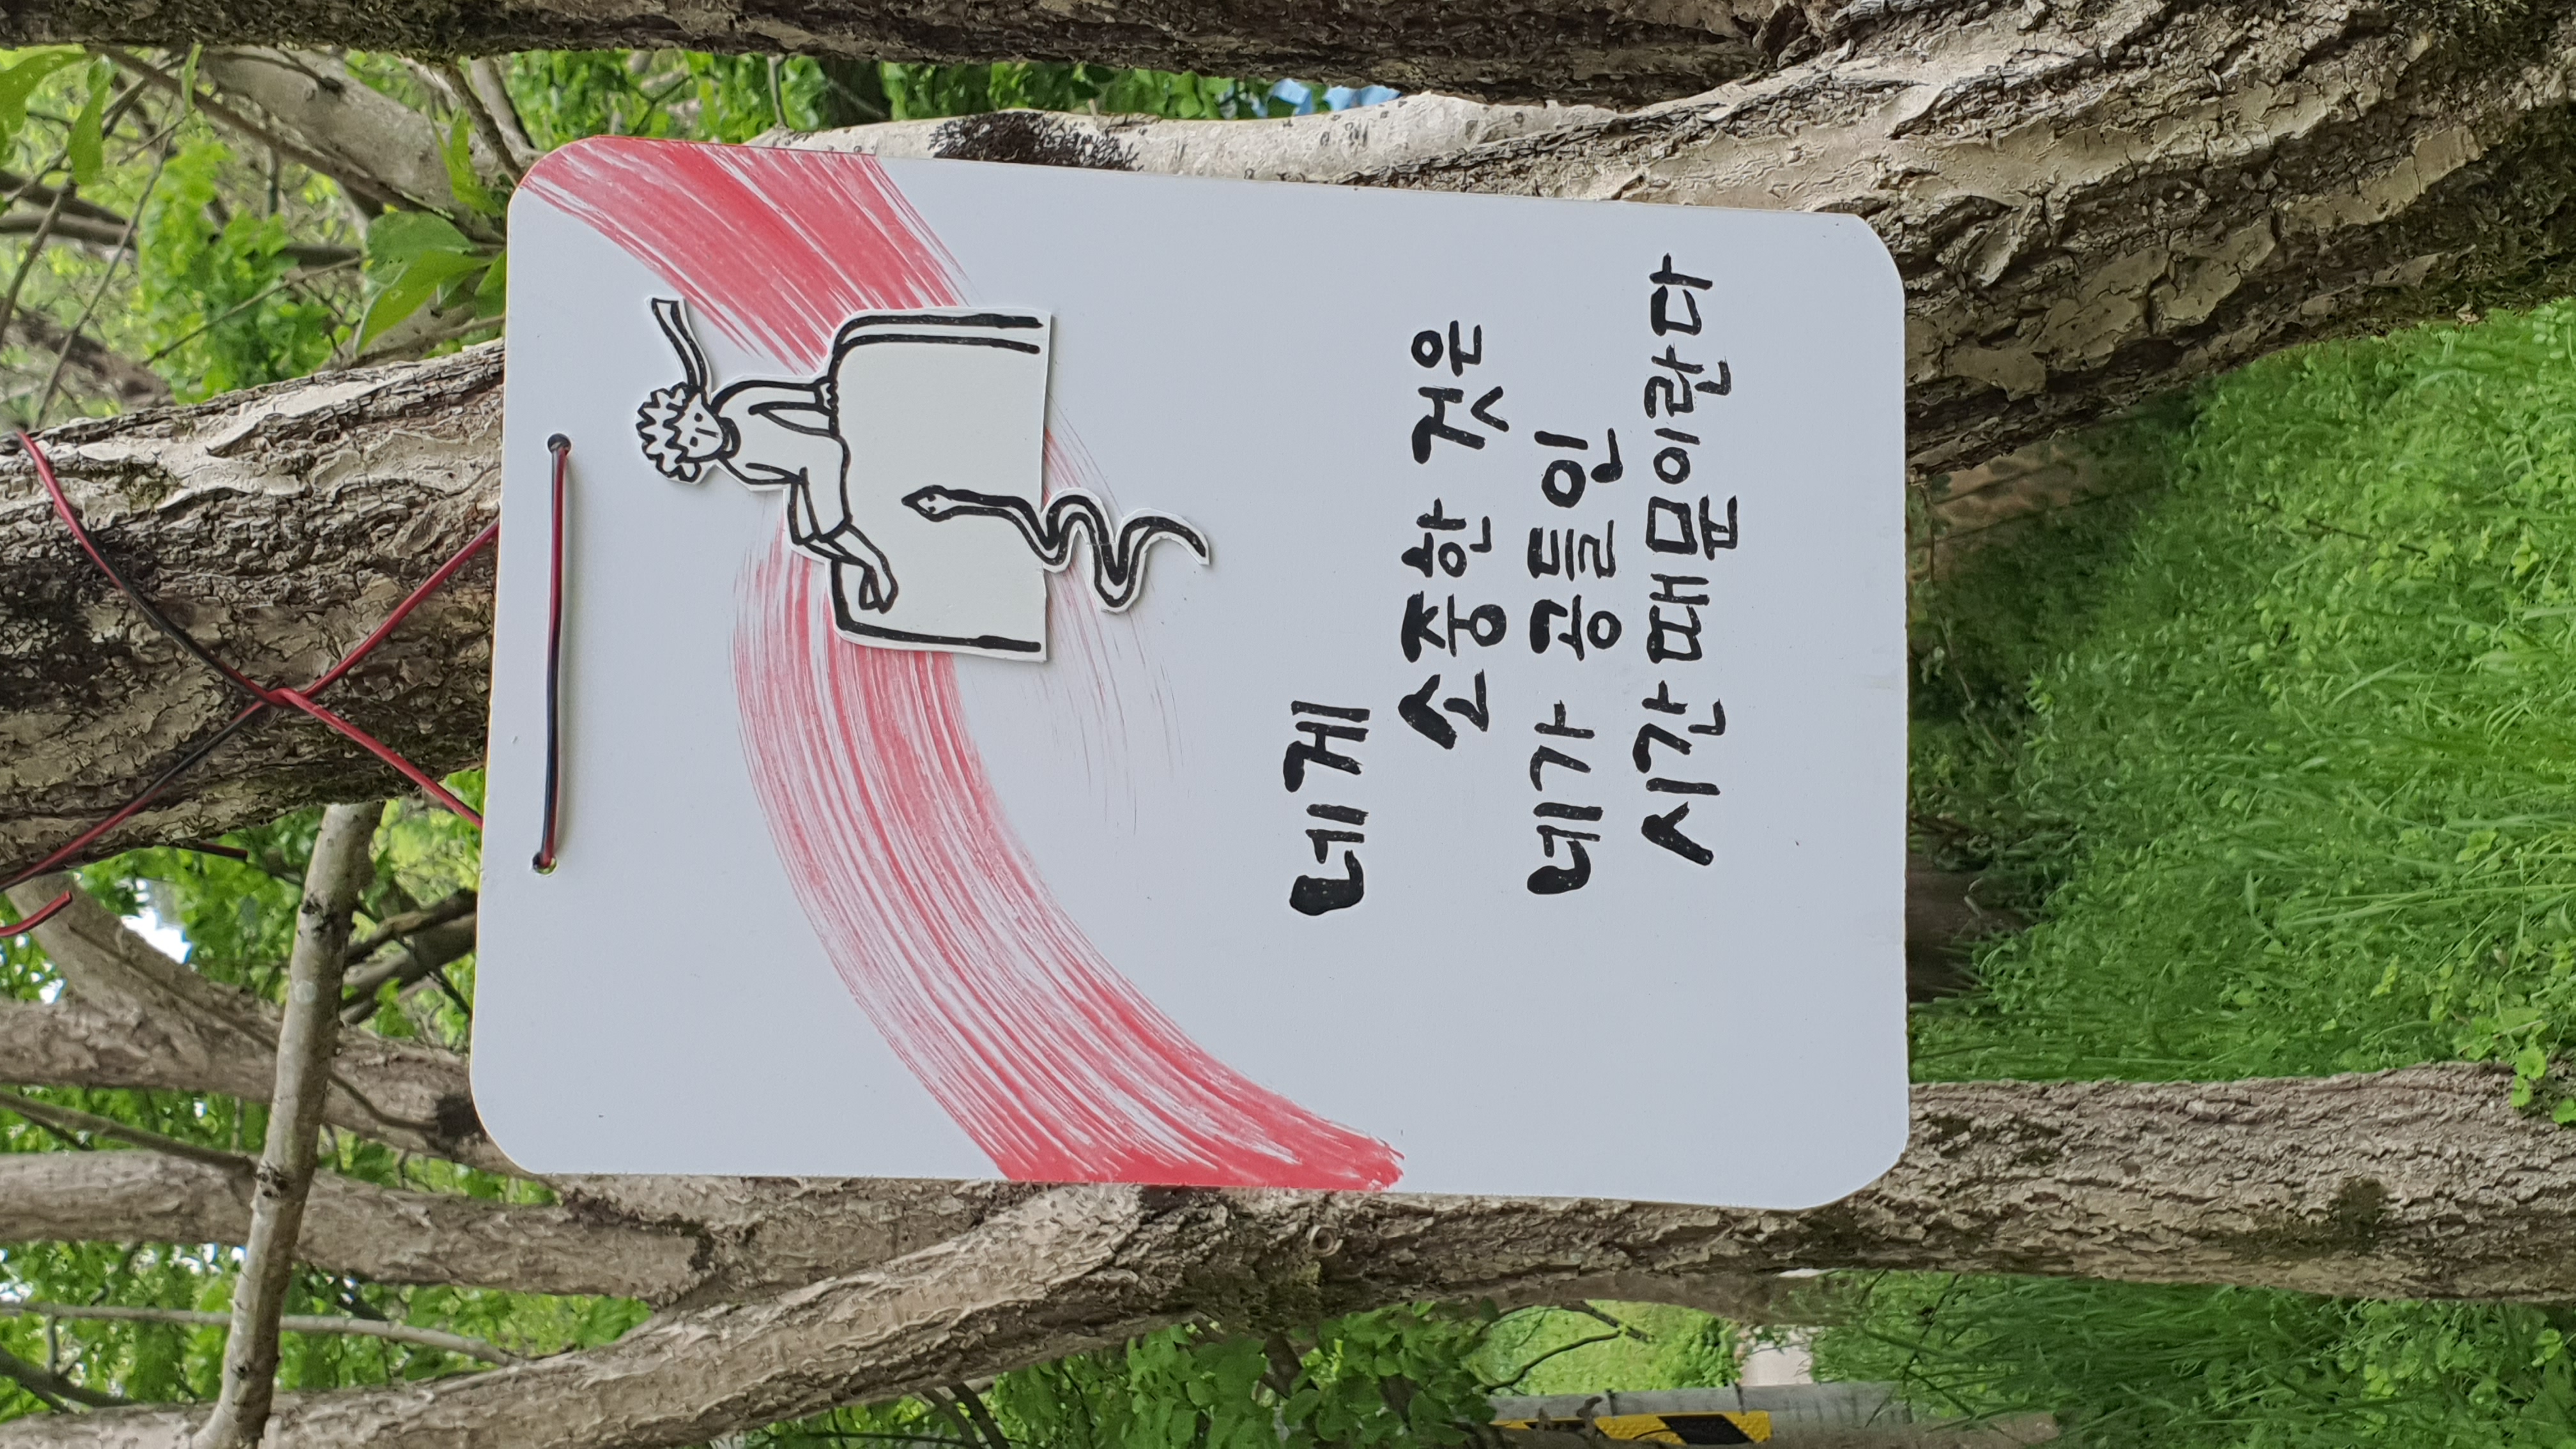 네게
소중한 것은
네가 공들인
시간 때문이란다